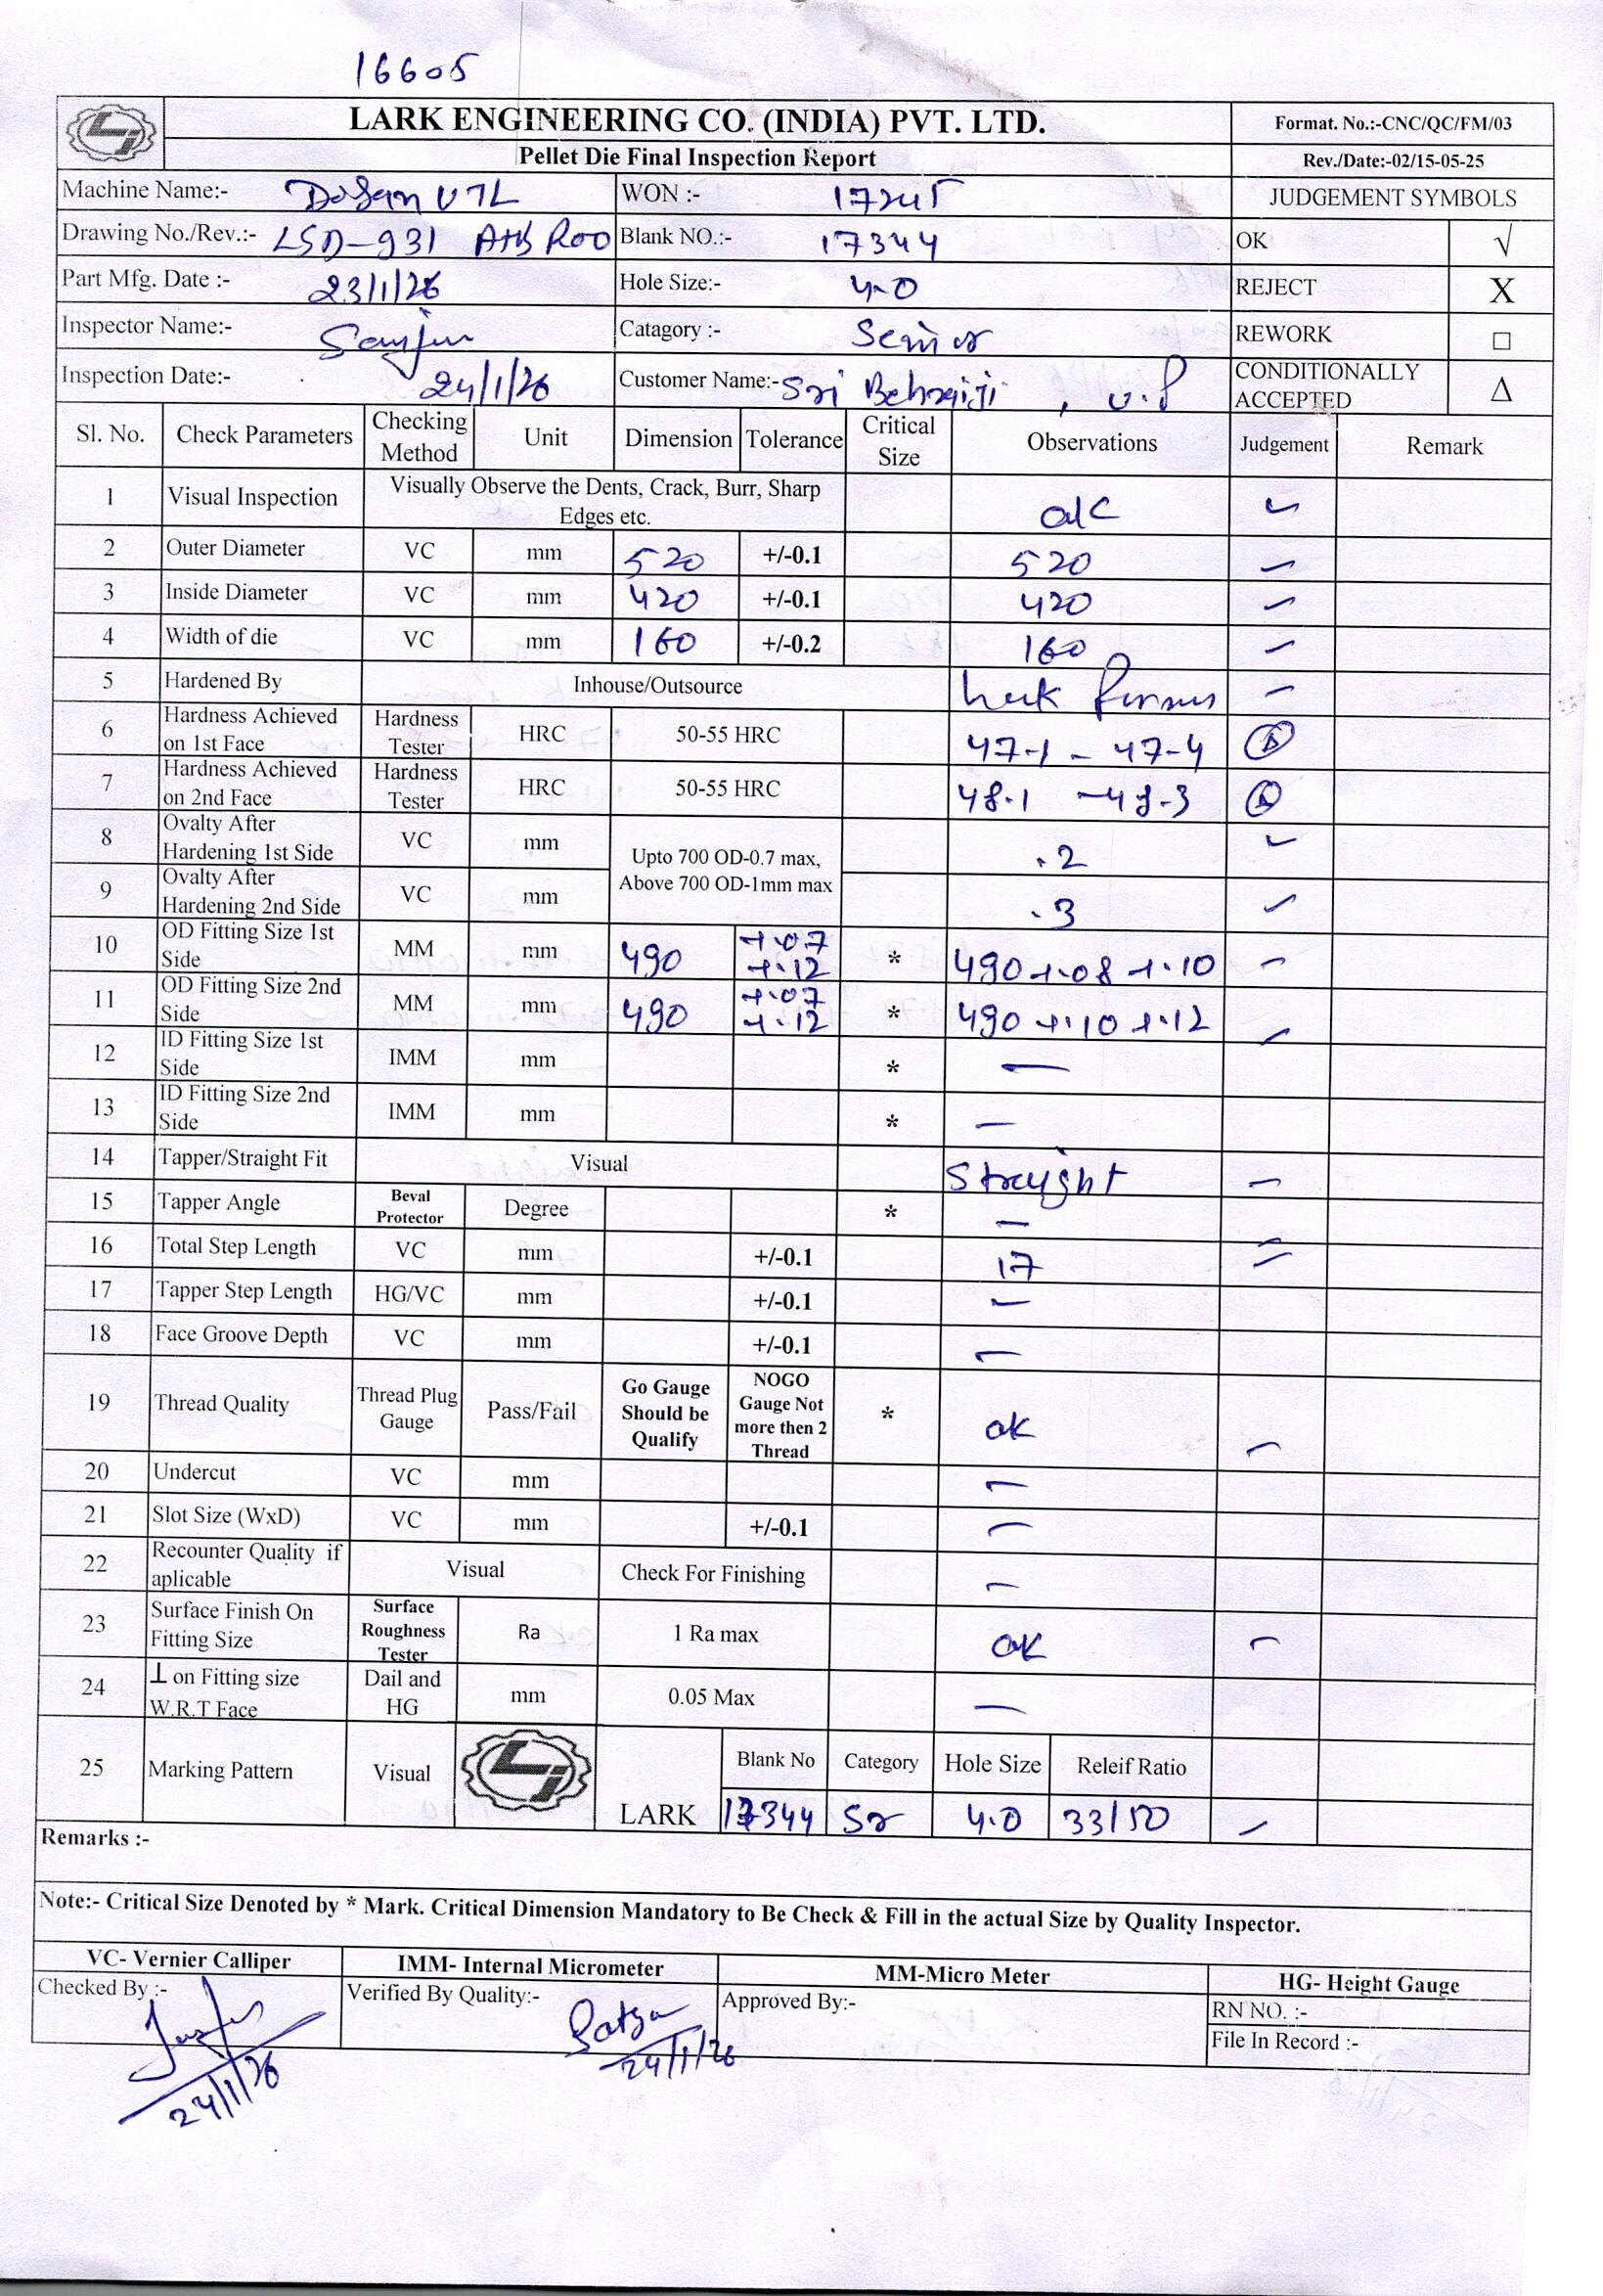 16605
LARK ENGINEERING CO. (INDIA) PVT. LTD.
Format. No.:-CNC/QC/FM/03
Pellet Die Final Inspection Report
Rev./Date:-02/15-05-25
Machine Name:- Dosan VTL WON :- 17245 JUDGEMENT SYMBOLS
Drawing No./Rev.:- LSD-931 R00 Blank NO.:- 17344 OK √
Part Mfg. Date :- 23/1/26 Hole Size:- 4.0 REJECT X
Inspector Name:- Catagory :- Senior REWORK □
Inspection Date:- 24/1/26 Customer Name:- Sri , U.P CONDITIONALLY ACCEPTED Δ
Sl. No. Check Parameters Checking Method Unit Dimension Tolerance Critical Size Observations Judgement Remark
1 Visual Inspection Visually Observe the Dents, Crack, Burr, Sharp Edges etc. ok ✓
2 Outer Diameter VC mm 520 +/-0.1 520 ✓
3 Inside Diameter VC mm 420 +/-0.1 420 ✓
4 Width of die VC mm 160 +/-0.2 160 ✓
5 Hardened By Inhouse/Outsource ✓
6 Hardness Achieved on 1st Face Hardness Tester HRC 50-55 HRC 47.1 - 47.4 Δ
7 Hardness Achieved on 2nd Face Hardness Tester HRC 50-55 HRC 48.1 - 48.3 Δ
8 Ovalty After Hardening 1st Side VC mm Upto 700 OD-0.7 max, Above 700 OD-1mm max .2 ✓
9 Ovalty After Hardening 2nd Side VC mm .3 ✓
10 OD Fitting Size 1st Side MM mm 490 +.07 +.12 * 490 +.08 +.10 ✓
11 OD Fitting Size 2nd Side MM mm 490 +.07 +.12 * 490 +.10 +.12 ✓
12 ID Fitting Size 1st Side IMM mm * —
13 ID Fitting Size 2nd Side IMM mm * —
14 Tapper/Straight Fit Visual Straight ✓
15 Tapper Angle Beval Protector Degree * —
16 Total Step Length VC mm +/-0.1 17 ✓
17 Tapper Step Length HG/VC mm +/-0.1 —
18 Face Groove Depth VC mm +/-0.1 —
19 Thread Quality Thread Plug Gauge Pass/Fail Go Gauge Should be Qualify NOGO Gauge Not more then 2 Thread * ok ✓
20 Undercut VC mm —
21 Slot Size (WxD) VC mm +/-0.1 —
22 Recounter Quality if aplicable Visual Check For Finishing —
23 Surface Finish On Fitting Size Surface Roughness Tester Ra 1 Ra max OK ✓
24 ⊥ on Fitting size W.R.T Face Dail and HG mm 0.05 Max —
25 Marking Pattern Visual LARK Blank No Category Hole Size Releif Ratio
17344 Sr 4.0 33/50 ✓
Remarks :-
Note:- Critical Size Denoted by * Mark. Critical Dimension Mandatory to Be Check & Fill in the actual Size by Quality Inspector.
VC- Vernier Calliper IMM- Internal Micrometer MM-Micro Meter HG- Height Gauge
Checked By :- Verified By Quality:- Approved By:- RN NO. :-
File In Record :-
24/1/26 24/1/26